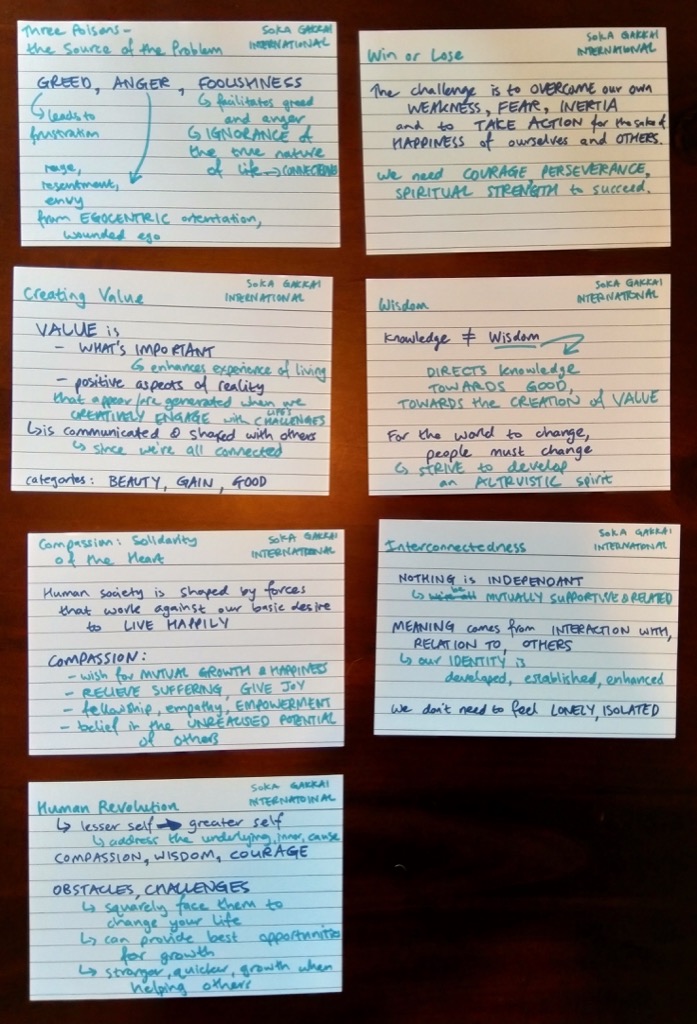 Three Poisons -
the Source of the Problem
SOKA GAKKAI
INTERNATIONAL
GREED, ANGER, FOOLISHNESS
↳ leads to
frustration
↳ facilitates greed
and anger
↳ IGNORANCE of
the true nature
of life → CONNECTEDNESS
rage,
resentment,
envy
from EGOCENTRIC orientation,
wounded ego
Win or Lose
SOKA GAKKAI
INTERNATIONAL
The challenge is to OVERCOME our own
WEAKNESS, FEAR, INERTIA
and to TAKE ACTION for the sake of
HAPPINESS of ourselves and OTHERS.
We need COURAGE PERSEVERANCE,
SPIRITUAL STRENGTH to succeed.
Creating Value
SOKA GAKKAI
INTERNATIONAL
VALUE is
- WHAT'S IMPORTANT
↳ enhances experience of living
- positive aspects of reality
that appear/are generated when we
CREATIVELY ENGAGE with LIFE'S CHALLENGES
↳ is communicated & shared with others
↳ since we're all connected
categories: BEAUTY, GAIN, GOOD
Wisdom
SOKA GAKKAI
INTERNATIONAL
Knowledge ≠ Wisdom
DIRECTS knowledge
TOWARDS GOOD,
TOWARDS the CREATION of VALUE
For the world to change,
people must change
↳ STRIVE to develop
an ALTRUISTIC spirit
Compassion: Solidarity
of the Heart
SOKA GAKKAI
INTERNATIONAL
Human society is shaped by forces
that work against our basic desire
to LIVE HAPPILY
COMPASSION:
- wish for MUTUAL GROWTH & HAPPINESS
- RELIEVE SUFFERING, GIVE JOY
- fellowship, empathy, EMPOWERMENT
- belief in the UNREALISED POTENTIAL
of others
Interconnectedness
SOKA GAKKAI
INTERNATIONAL
NOTHING is INDEPENDANT
↳ MUTUALLY SUPPORTIVE & RELATED
MEANING comes from INTERACTION WITH,
RELATION TO, OTHERS
↳ our IDENTITY is
developed, established, enhanced
We don't need to feel LONELY, ISOLATED
Human Revolution
SOKA GAKKAI
INTERNATOINAL
↳ lesser self → greater self
↳ address the underlying, inner, cause
COMPASSION, WISDOM, COURAGE
OBSTACLES, CHALLENGES
↳ squarely face them to
change your life
↳ can provide best opportunities
for growth
↳ stronger, quicker, growth when
helping others